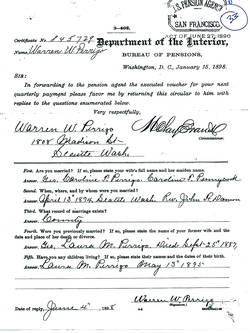 3-402.
U.S. PENSION AGENCY
SAN FRANCISCO.
ACT OF JUNE 27, 1890
Certificate No. 845729
Name, Warren W Perrigo
Department of the Interior,
BUREAU OF PENSIONS,
Washington, D. C., January 15, 1898.
SIR:
In forwarding to the pension agent the executed voucher for your next
quarterly payment please favor me by returning this circular to him with
replies to the questions enumerated below.
Very respectfully,
Commissioner.
Warren W Perrigo
1808 Madison St
Seattle Wash.
First. Are you married? If so, please state your wife's full name and her maiden name.
Yes. Caroline P. Perrigo. Caroline P. Pennycook
Second. When, where, and by whom were you married?
April 13th 1894, Seattle Wash Rev. John F. Damon
Third. What record of marriage exists?
County
Fourth. Were you previously married? If so, please state the name of your former wife and the
date and place of her death or divorce.
Yes, Laura M. Perrigo. Died Sept 25th 1887.
Fifth. Have you any children living? If so, please state their names and the dates of their birth.
Laura M. Perrigo May 13th 1895
Warren W. Perrigo
(Signature.)
Date of reply, June 4th, 1898